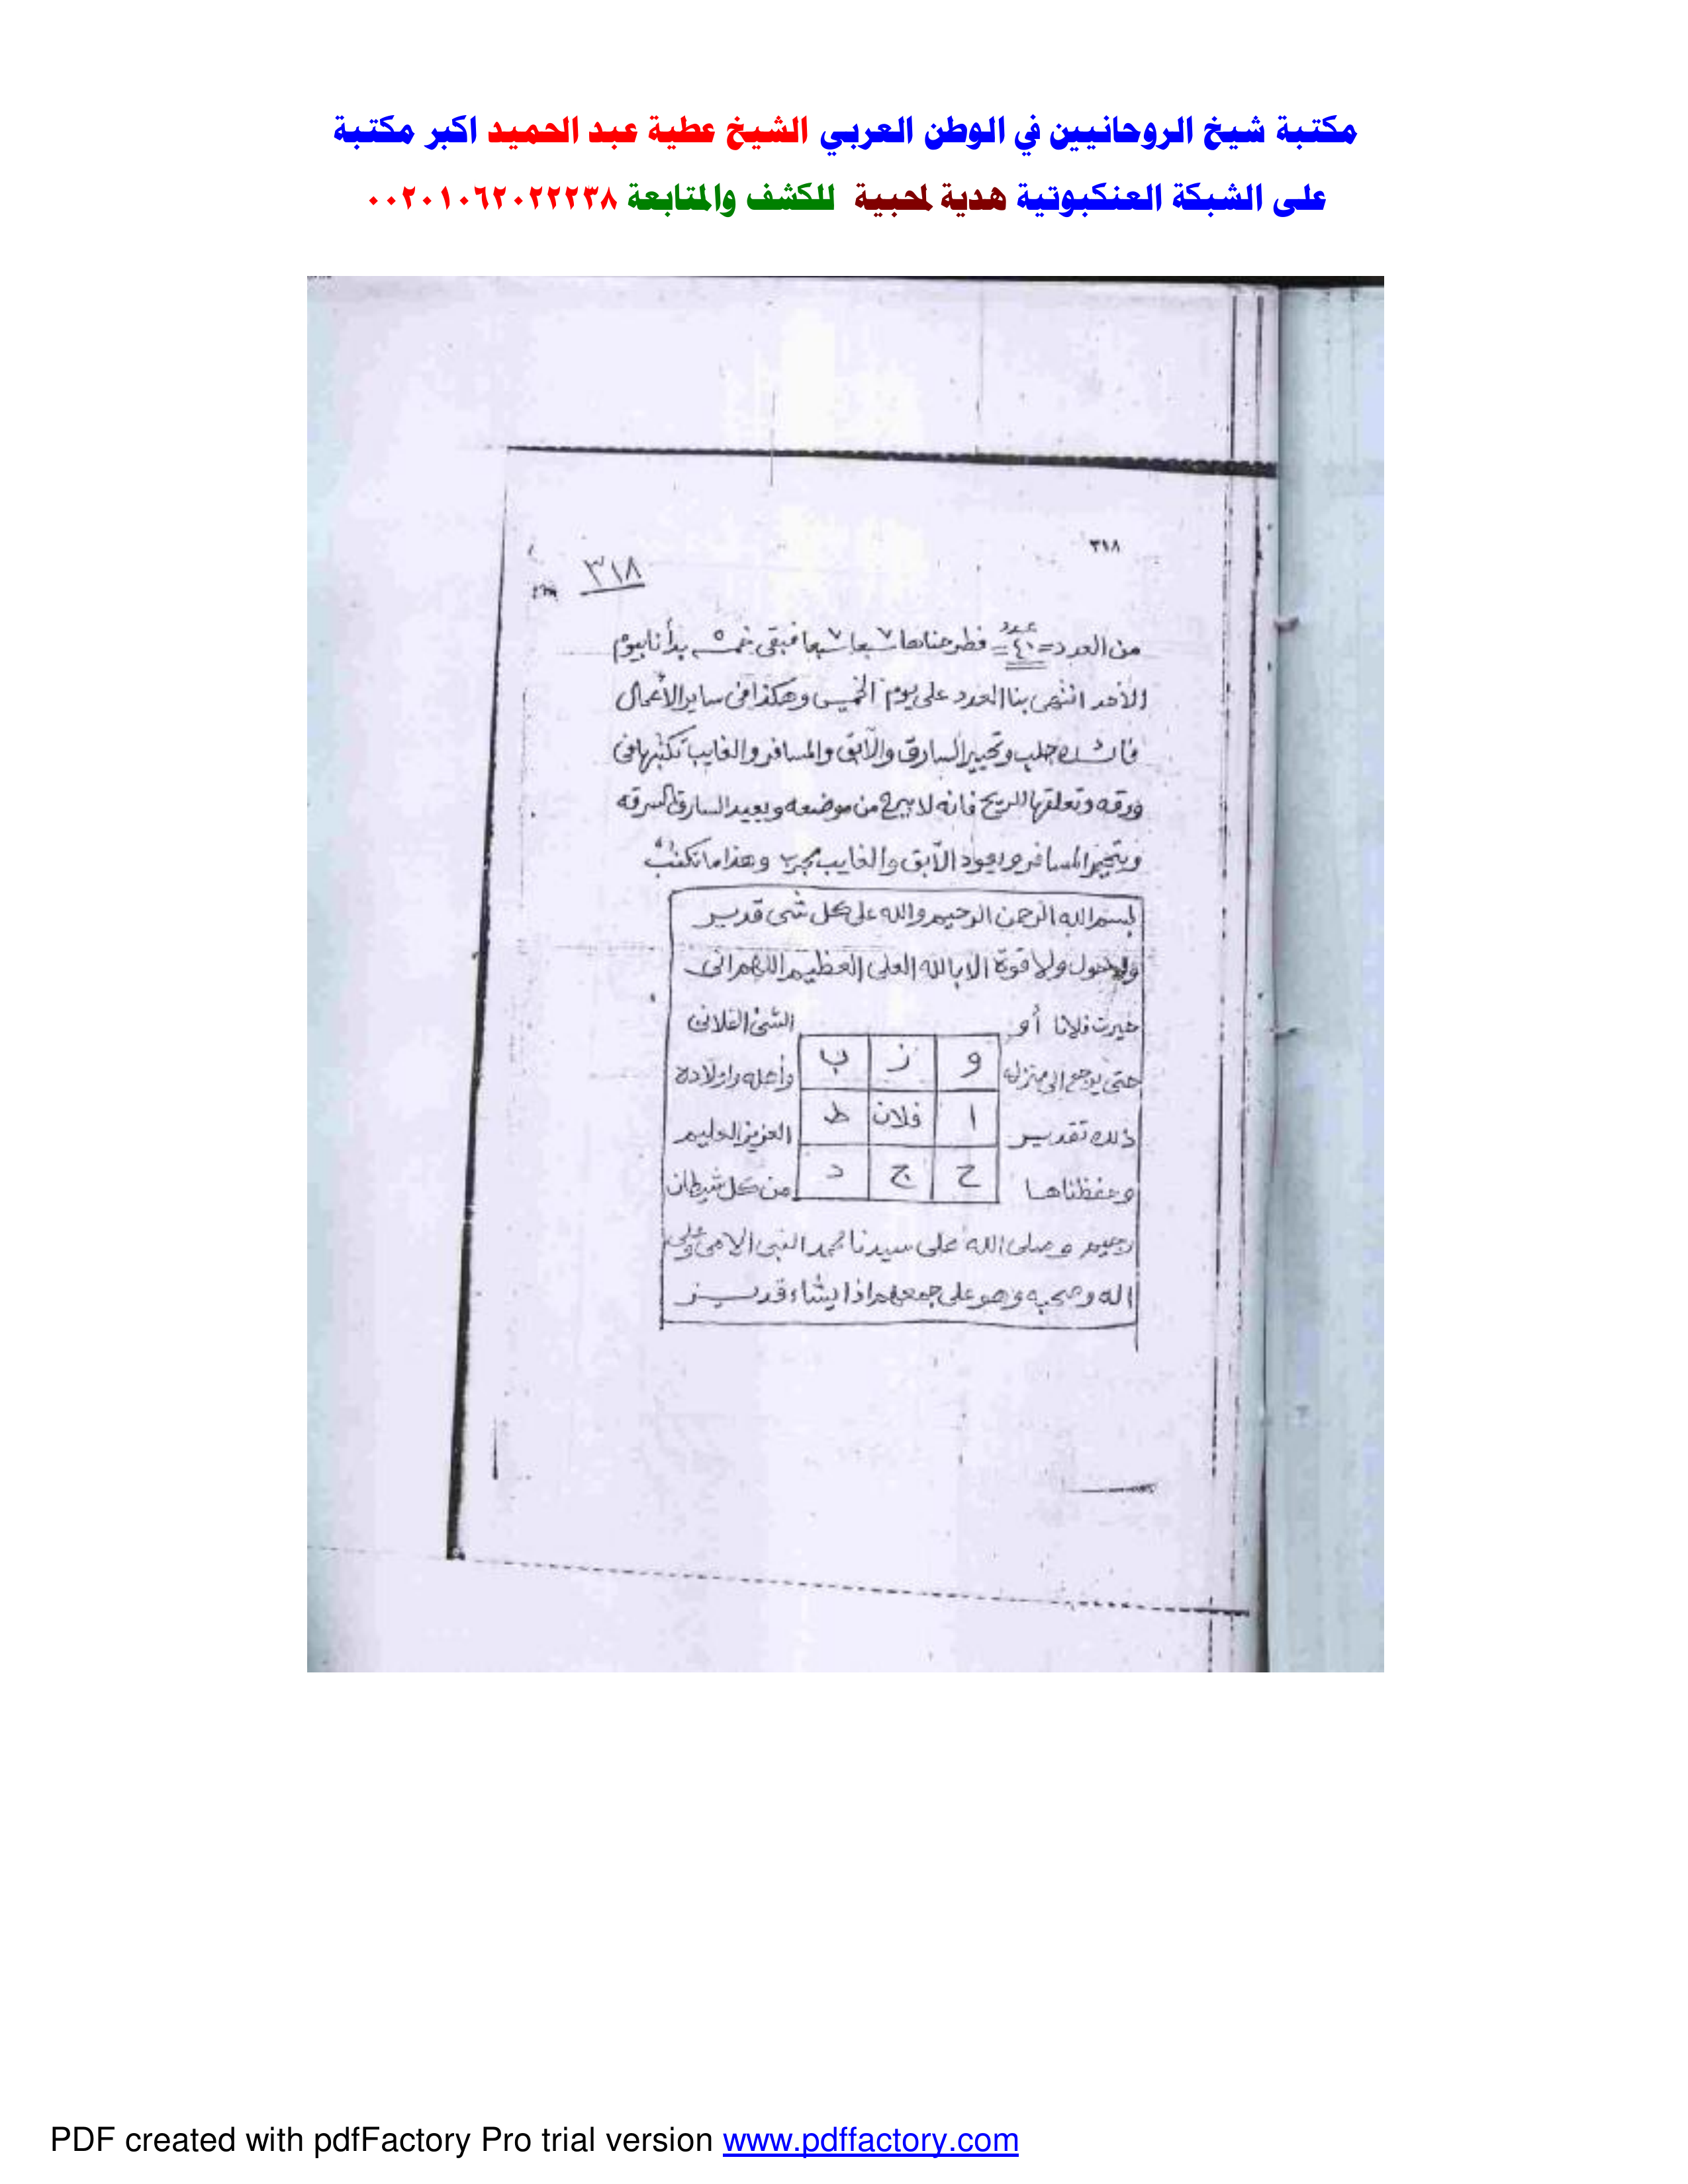 مكتبة شيخ الروحانيين في الوطن العربي الشيخ عطية عبد الحميد اكبر مكتبة
على الشبكة العنكبوتية هدية لمحبية للكشف والمتابعة ٠٠٢٠١٠٦٢٠٢٢٢٣٨
٣١٨
٣١٨
من العدد = عدد ٤٠ = فطرحناها سبعا ٧ سبعا ٧ فبقى خمسه ٥ بدأنا بيوم
الأحد انتهى بنا العدد على يوم الخميس وهكذا فى ساير الأعمال
جلب وتحيير السارق والآبق والمسافر والغايب تكتبها فى
ورقه وتعلقها للريح فانه لا يبرح من موضعه ويعيد السارق السرقه
ويتحير المسافر ويعود الآبق والغايب مجرب وهذا ما تكتب
بسم الله الرحمن الرحيم والله على كل شى قدير
ولا حول ولا قوة الا بالله العلى العظيم اللهم انى
حيرت فلانا أو الشئ الفلانى
حتى يرجع الى منزله وأهله واولاده
ذلك تقدير العزيز العليم
وحفظناها من كل شيطان
و ز ب
ا فلان ط
ح ج د
رجيم وصلى الله على سيدنا محمد النبى الامى وعلى
اله وصحبه وهو على جمعهم اذا يشاء قدير
PDF created with pdfFactory Pro trial version www.pdffactory.com